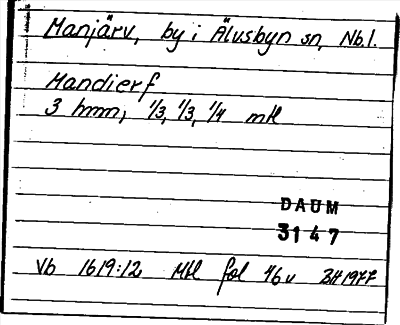 Manjärv, by i Älvsbyn sn, Nb.l.
Mandierf
3 hmn, 1/3, 1/3, 1/4 mtl
DAUM
3147
Vb 1619:12 Mtl fol 46v BH1977